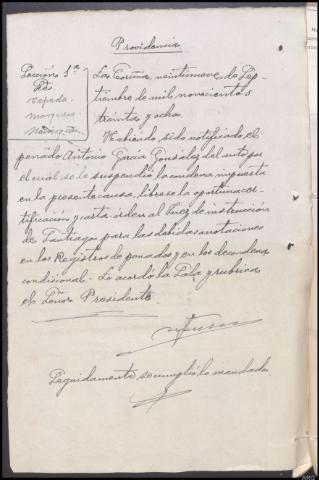 Providencia
Sección 1ª
Cepeda
La Coruña, veintinueve de Sep-
tiembre de mil novecientos
treinta y ocho.
Habiendo sido notificado el
penado Antonio García González del auto por
el cual se le suspendió la condena impuesta
en la presente causa, líbrese la oportuna cer-
tificación y carta orden al Juez de instrucción
de Santiago para las debidas anotaciones
en los Registros de penados y en los de condena
condicional.- Lo acordó la Sala y rubrica
el Señor Presidente.
Seguidamente se cumplió lo mandado.